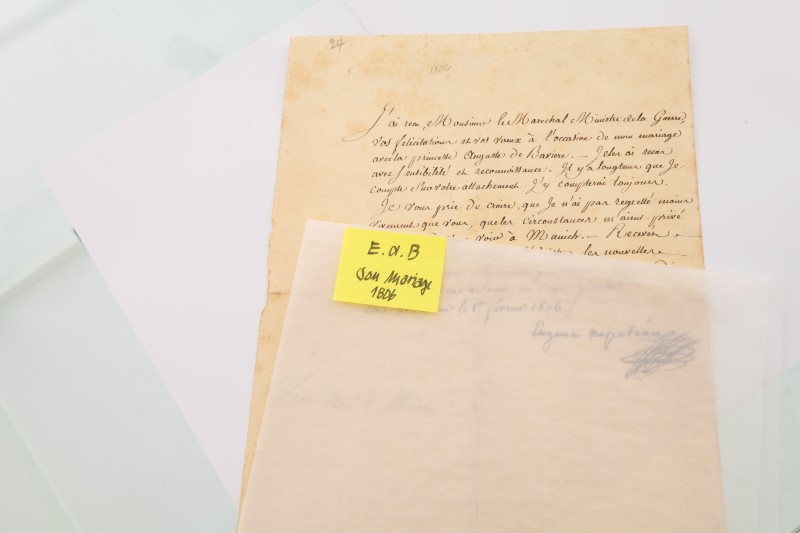 27
1806
J'ai reçu, Monsieur le Maréchal Ministre de la Guerre,
vos félicitations et vos vœux à l'occasion de mon mariage
avec la princesse Auguste de Bavière. — Je les ai reçus
avec sensibilité et reconnaissance. Il y a longtems que je
compte sur votre attachement. J'y compterai toujours.
Je vous prie de croire, que je n'ai pas regretté moins
vivement que vous, que les circonstances m'aient privé
voir à Munich. — Recevez
les nouvelles
E. d. B
Son Mariage
1806
le 1er février 1806
Eugene Napoléon